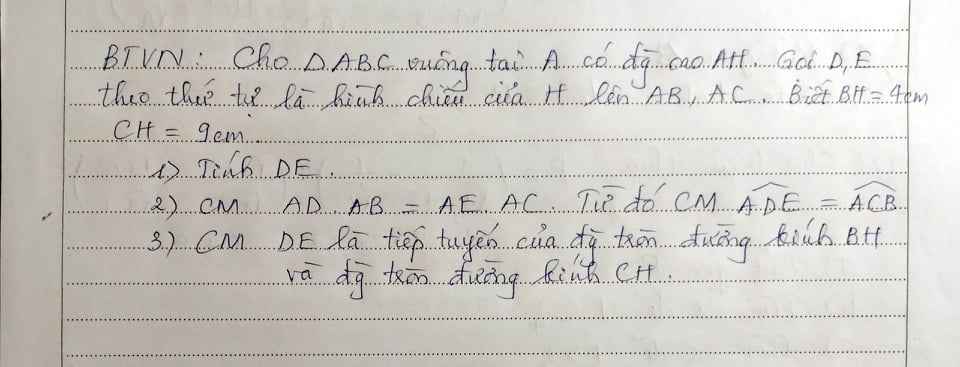 BTVN: Cho Δ ABC vuông tại A có đg cao AH. Gọi D, E
theo thứ tự là hình chiếu của H lên AB, AC. Biết BH = 4cm
CH = 9cm.
1) Tính DE.
2) CM AD. AB = AE. AC. Từ đó CM \widehat{ADE} = \widehat{ACB}
3) CM DE là tiếp tuyến của đg tròn đường kính BH
và đg tròn đường kính CH.